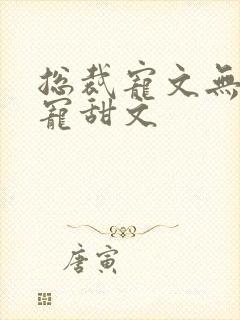 总裁宠文無
寵甜文
唐寅